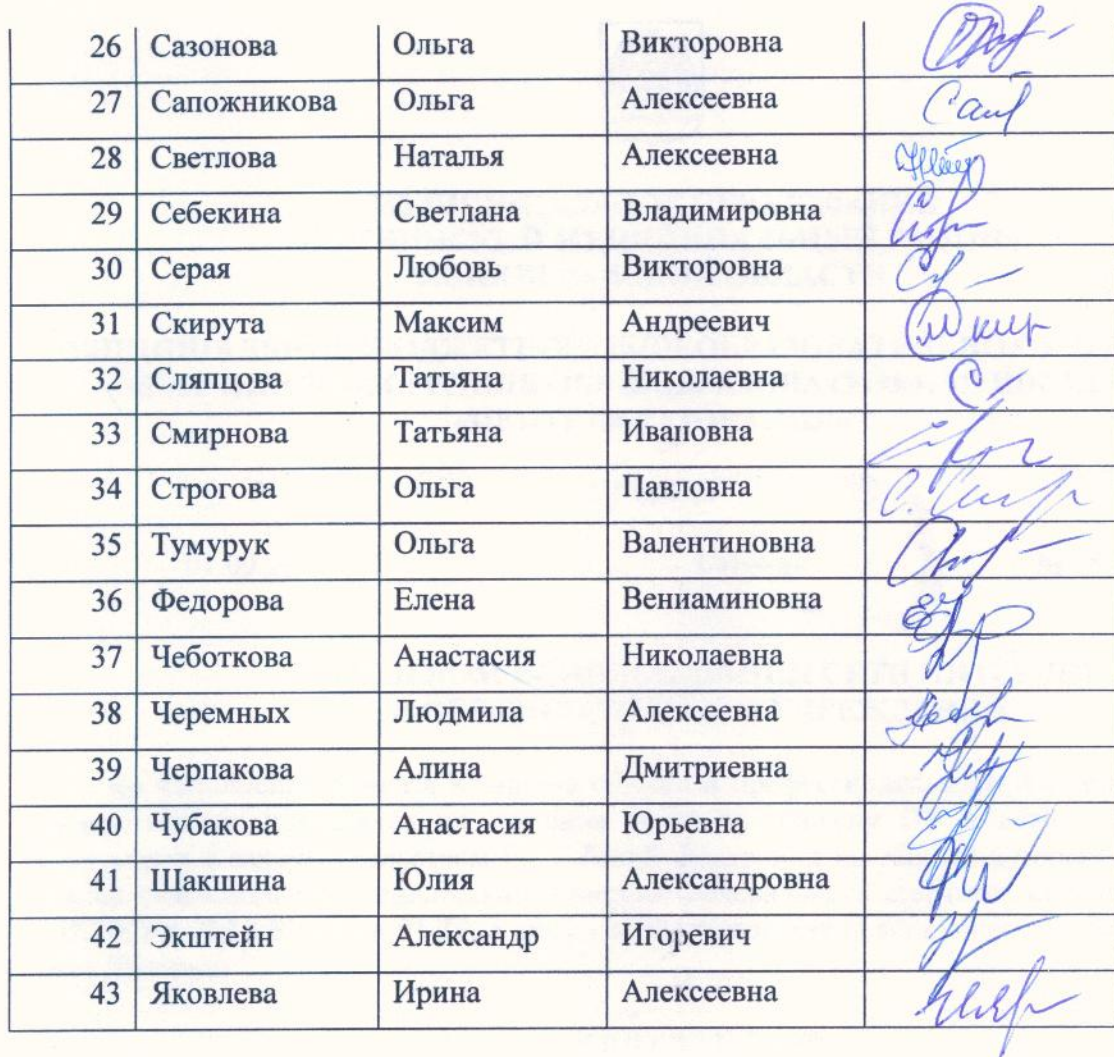 26 Сазонова Ольга Викторовна
27 Сапожникова Ольга Алексеевна
28 Светлова Наталья Алексеевна
29 Себекина Светлана Владимировна
30 Серая Любовь Викторовна
31 Скирута Максим Андреевич
32 Сляпцова Татьяна Николаевна
33 Смирнова Татьяна Ивановна
34 Строгова Ольга Павловна
35 Тумурук Ольга Валентиновна
36 Федорова Елена Вениаминовна
37 Чеботкова Анастасия Николаевна
38 Черемных Людмила Алексеевна
39 Черпакова Алина Дмитриевна
40 Чубакова Анастасия Юрьевна
41 Шакшина Юлия Александровна
42 Экштейн Александр Игоревич
43 Яковлева Ирина Алексеевна